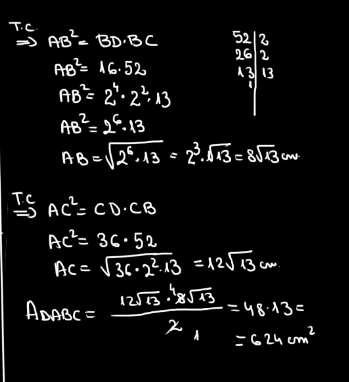 T.C.
⇒ AB² = BD·BC
AB² = 16·52
AB² = 2⁴·2²·13
AB² = 2⁶·13
AB = √(2⁶·13) = 2³·√13 = 8√13 cm
52|2
26|2
13|13
1|
T.C
⇒ AC² = CD·CB
AC² = 36·52
AC = √(36·2²·13) = 12√13 cm.
AΔABC = (12√13·⁴8√13)/2 ₁ = 48·13 =
= 624 cm²